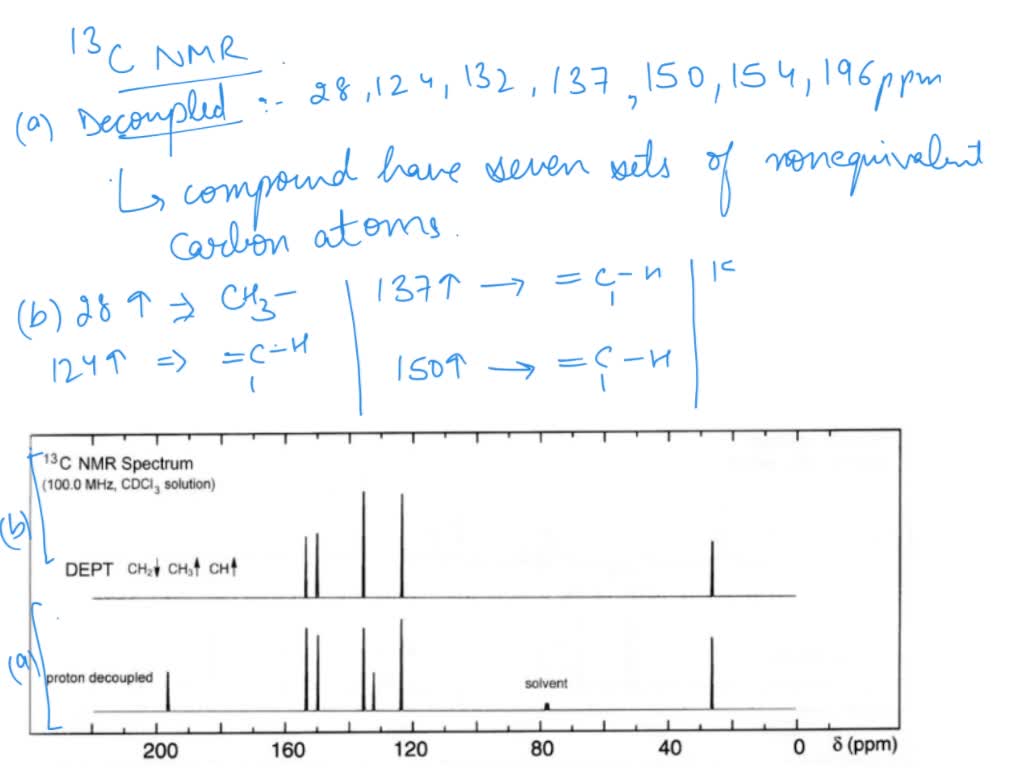 13C NMR
(a) Decoupled :- 28, 124, 132, 137, 150, 154, 196 ppm
↳ compound have seven sets of nonequivalent
carbon atoms.
(b) 28 ↑ ⇒ CH3− | 137↑ → =C−H | 15
124↑ ⇒ =C−H 150↑ → =C−H
13C NMR Spectrum
(100.0 MHz, CDCl3 solution)
(b)
DEPT CH2↓ CH3↑ CH↑
(a)
proton decoupled
solvent
200 160 120 80 40 0 δ (ppm)